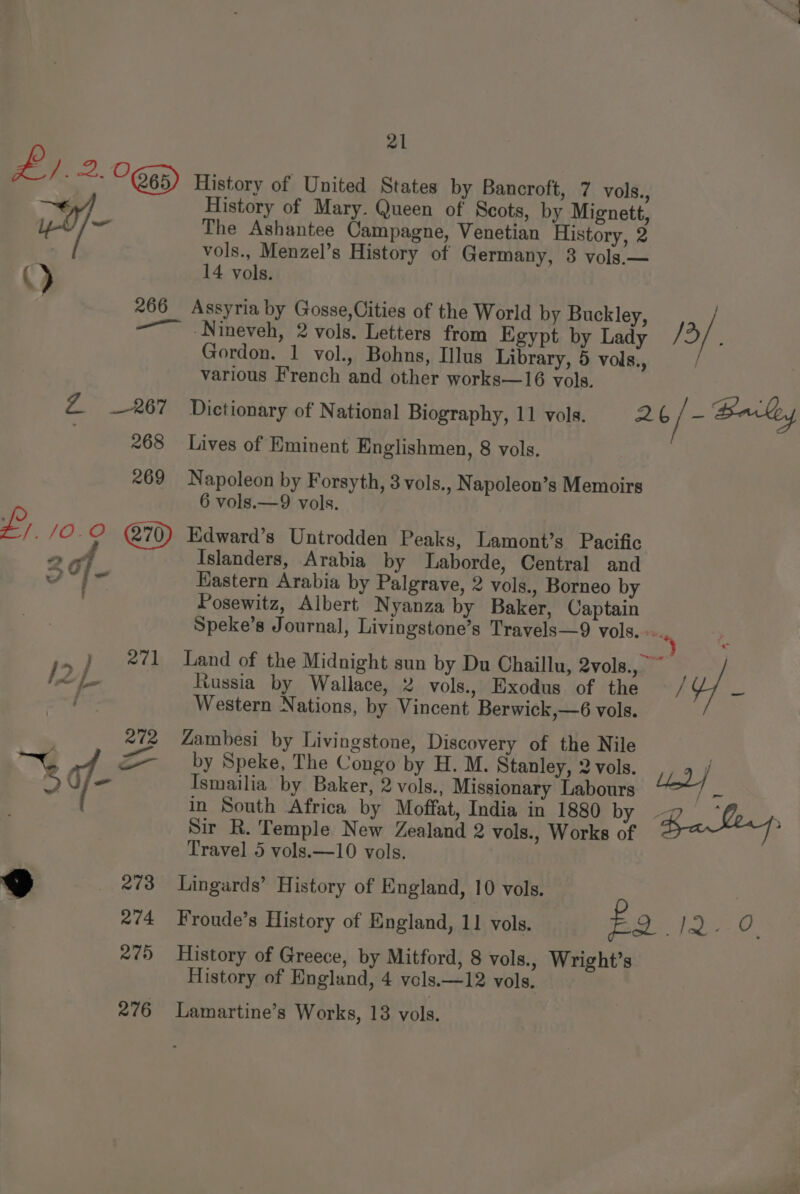 21
£1. 2. 0 265 History of United States by Bancroft, 7 vols.,
History of Mary. Queen of Scots, by Mignett,
The Ashantee Campagne, Venetian History, 2
vols., Menzel's History of Germany, 3 vols.—
14 vols.
266 Assyria by Gosse,Cities of the World by Buckley,
Nineveh, 2 vols. Letters from Egypt by Lady 13/.
Gordon. 1 vol., Bohns, Illus Library, 5 vols.,
various French and other works—16 vols.
267 Dictionary of National Biography, 11 vols. 26/- Bailey
268 Lives of Eminent Englishmen, 8 vols.
269 Napoleon by Forsyth, 3 vols., Napoleon's Memoirs
6 vols.—9 vols.
£1. 10. 0 270 Edward's Untrodden Peaks, Lamont's Pacific
Islanders, Arabia by Laborde, Central and
Eastern Arabia by Palgrave, 2 vols., Borneo by
Posewitz, Albert Nyanza by Baker, Captain
Speke's Journal, Livingstone's Travels—9 vols.
271 Land of the Midnight sun by Du Chaillu, 2vols.,
12/- Russia by Wallace, 2 vols., Exodus of the 14/-
Western Nations, by Vincent Berwick,—6 vols.
272 Zambesi by Livingstone, Discovery of the Nile
by Speke, The Congo by H. M. Stanley, 2 vols.
30/- Ismailia by Baker, 2 vols., Missionary Labours 42/-
in South Africa by Moffat, India in 1880 by
Sir R. Temple New Zealand 2 vols., Works of Bailey
Travel 5 vols.—10 vols.
273 Lingards' History of England, 10 vols.
274 Froude's History of England, 11 vols. £2. 12. 0.
275 History of Greece, by Mitford, 8 vols., Wright's
History of England, 4 vols.—12 vols.
276 Lamartine's Works, 13 vols.